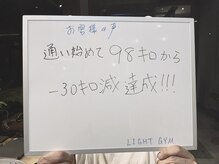 お客様の声
通い始めて98キロから
-30キロ減 達成!!!
LIGHT GYM